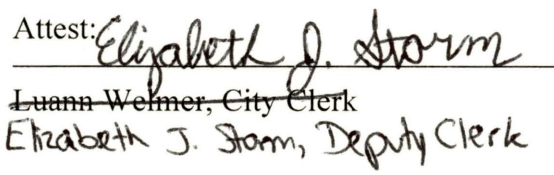 Attest: Elizabeth J. Storm
Luann Welmer, City Clerk
Elizabeth J. Storm, Deputy Clerk